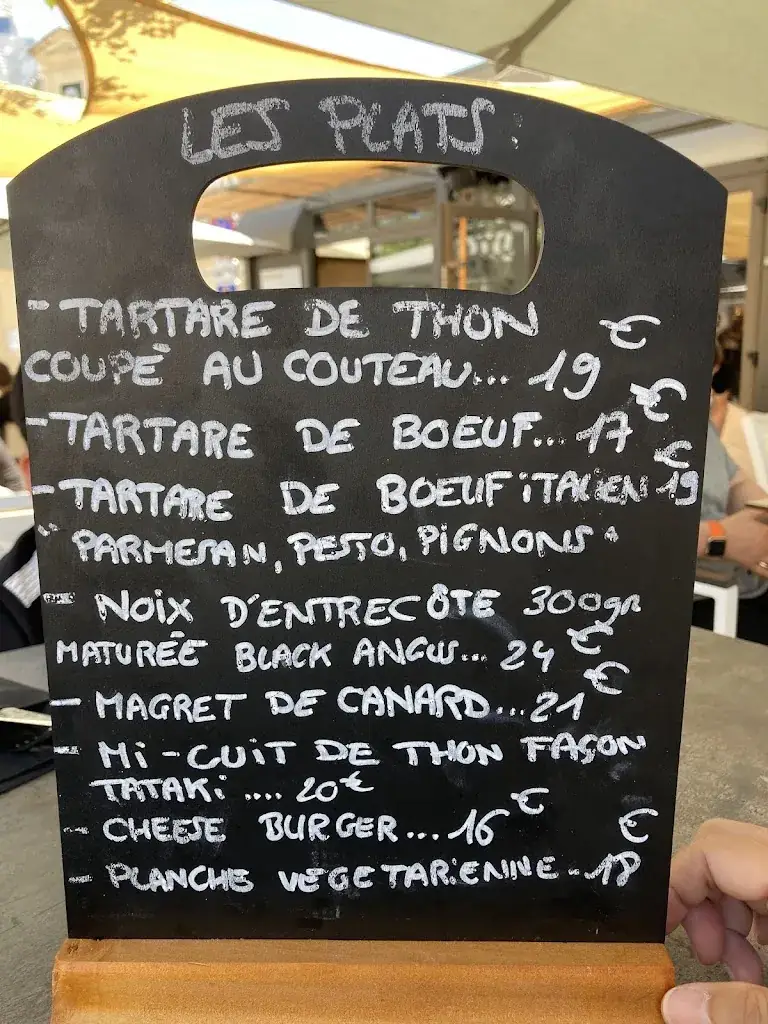 LES PLATS:
- TARTARE DE THON
COUPÉ AU COUTEAU... 19 €
- TARTARE DE BOEUF... 17 €
- TARTARE DE BOEUF iTALiEN 19 €
" PARMESAN, PESTO, PiGNONS "
- NOiX D'ENTRECÔTE 300gr
MATURÉE BLACK ANGUS... 24 €
- MAGRET DE CANARD... 21 €
- Mi-CUiT DE THON FAÇON
TATAKi .... 20€
- CHEESE BURGER... 16 €
- PLANCHE VEGETARiENNE.. 18 €